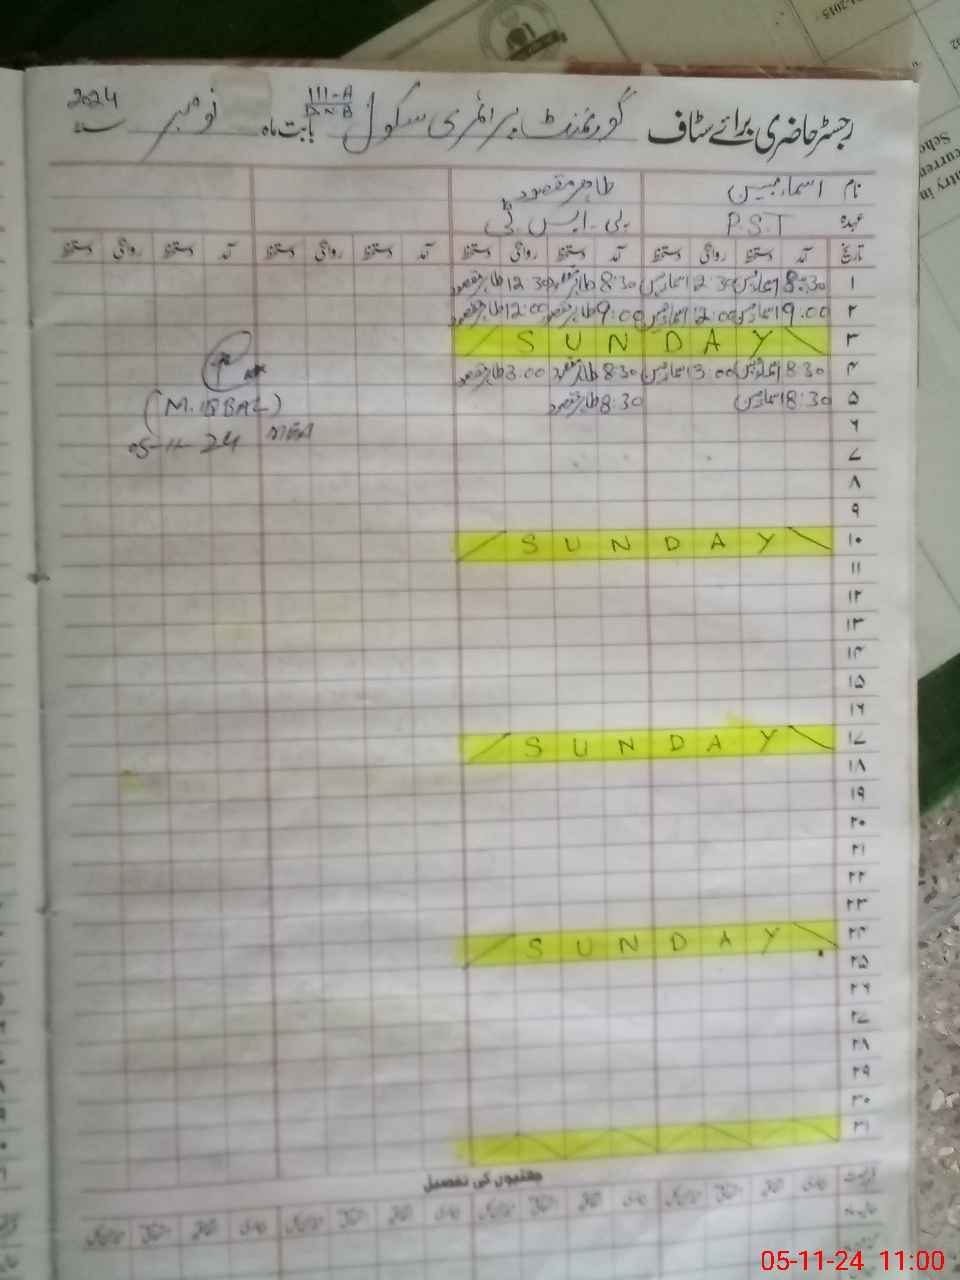 2024 سنہ نومبر بابت ماہ III-A گورنمنٹ پرائمری سکول رجسٹر حاضری برائے سٹاف
نام اسماء مبین طاہر مقصود
عہدہ P.S.T پی۔ایس۔ٹی
تاریخ آمد دستخط روانگی دستخط آمد دستخط روانگی دستخط آمد دستخط روانگی دستخط آمد دستخط روانگی دستخط
۱ 8:30 اسماء مبین 12:30 اسماء مبین 8:30 طاہر مقصود 12:30 طاہر مقصود
۲ 9:00 اسماء مبین 12:00 اسماء مبین 9:00 طاہر مقصود 12:00 طاہر مقصود
۳ SUNDAY
۴ 8:30 اسماء مبین 3:00 اسماء مبین 8:30 طاہر مقصود 3:00 طاہر مقصود
۵ 8:30 اسماء مبین 8:30 طاہر مقصود
(M.IQBAL)
۶
05-11-24 MEA
۷
۸
۹
۱۰ SUNDAY
۱۱
۱۲
۱۳
۱۴
۱۵
۱۶
۱۷ SUNDAY
۱۸
۱۹
۲۰
۲۱
۲۲
۲۳
۲۴ SUNDAY
۲۵
۲۶
۲۷
۲۸
۲۹
۳۰
۳۱
چھٹیوں کی تفصیل
05-11-24 11:00